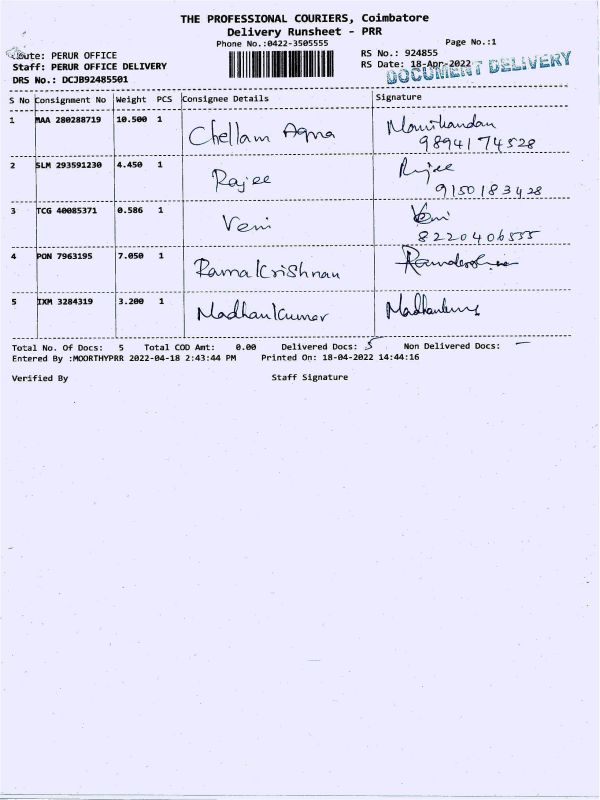 THE PROFESSIONAL COURIERS, Coimbatore
Delivery Runsheet - PRR
Phone No.:0422-3505555
Page No.:1
Route: PERUR OFFICE
RS No.: 924855
Staff: PERUR OFFICE DELIVERY
RS Date: 18-Apr-2022
DOCUMENT DELIVERY
DRS No.: DCJB92485501
S No Consignment No Weight PCS Consignee Details Signature
1 MAA 280288719 10.500 1 Chellam Agna Manikandan
9894174528
2 SLM 293591230 4.450 1 Rajee Rajee
9150183428
3 TCG 40085371 0.586 1 Veni Veni
8220406555
4 PON 7963195 7.050 1 Ramakrishnan
5 IXM 3284319 3.200 1 Madhankumar
Total No. Of Docs: 5 Total COD Amt: 0.00 Delivered Docs: 5 Non Delivered Docs: -
Entered By :MOORTHYPRR 2022-04-18 2:43:44 PM Printed On: 18-04-2022 14:44:16
Verified By Staff Signature